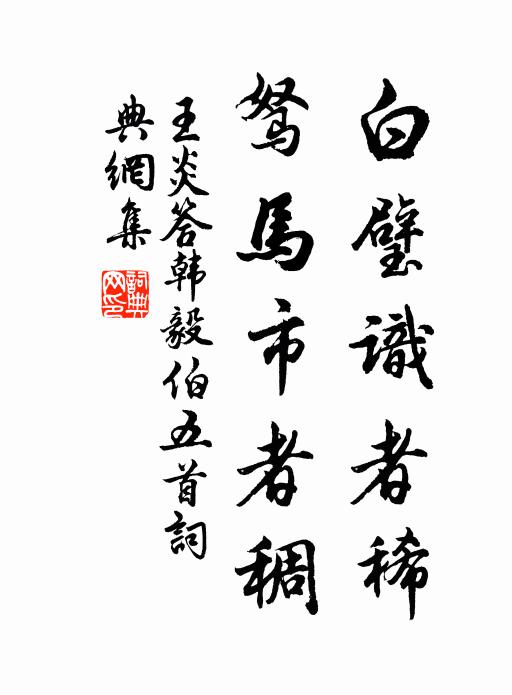 白璧識者稀
駑馬市者稠
王炎答韩毅伯五首詞
典網集
詞典
网印